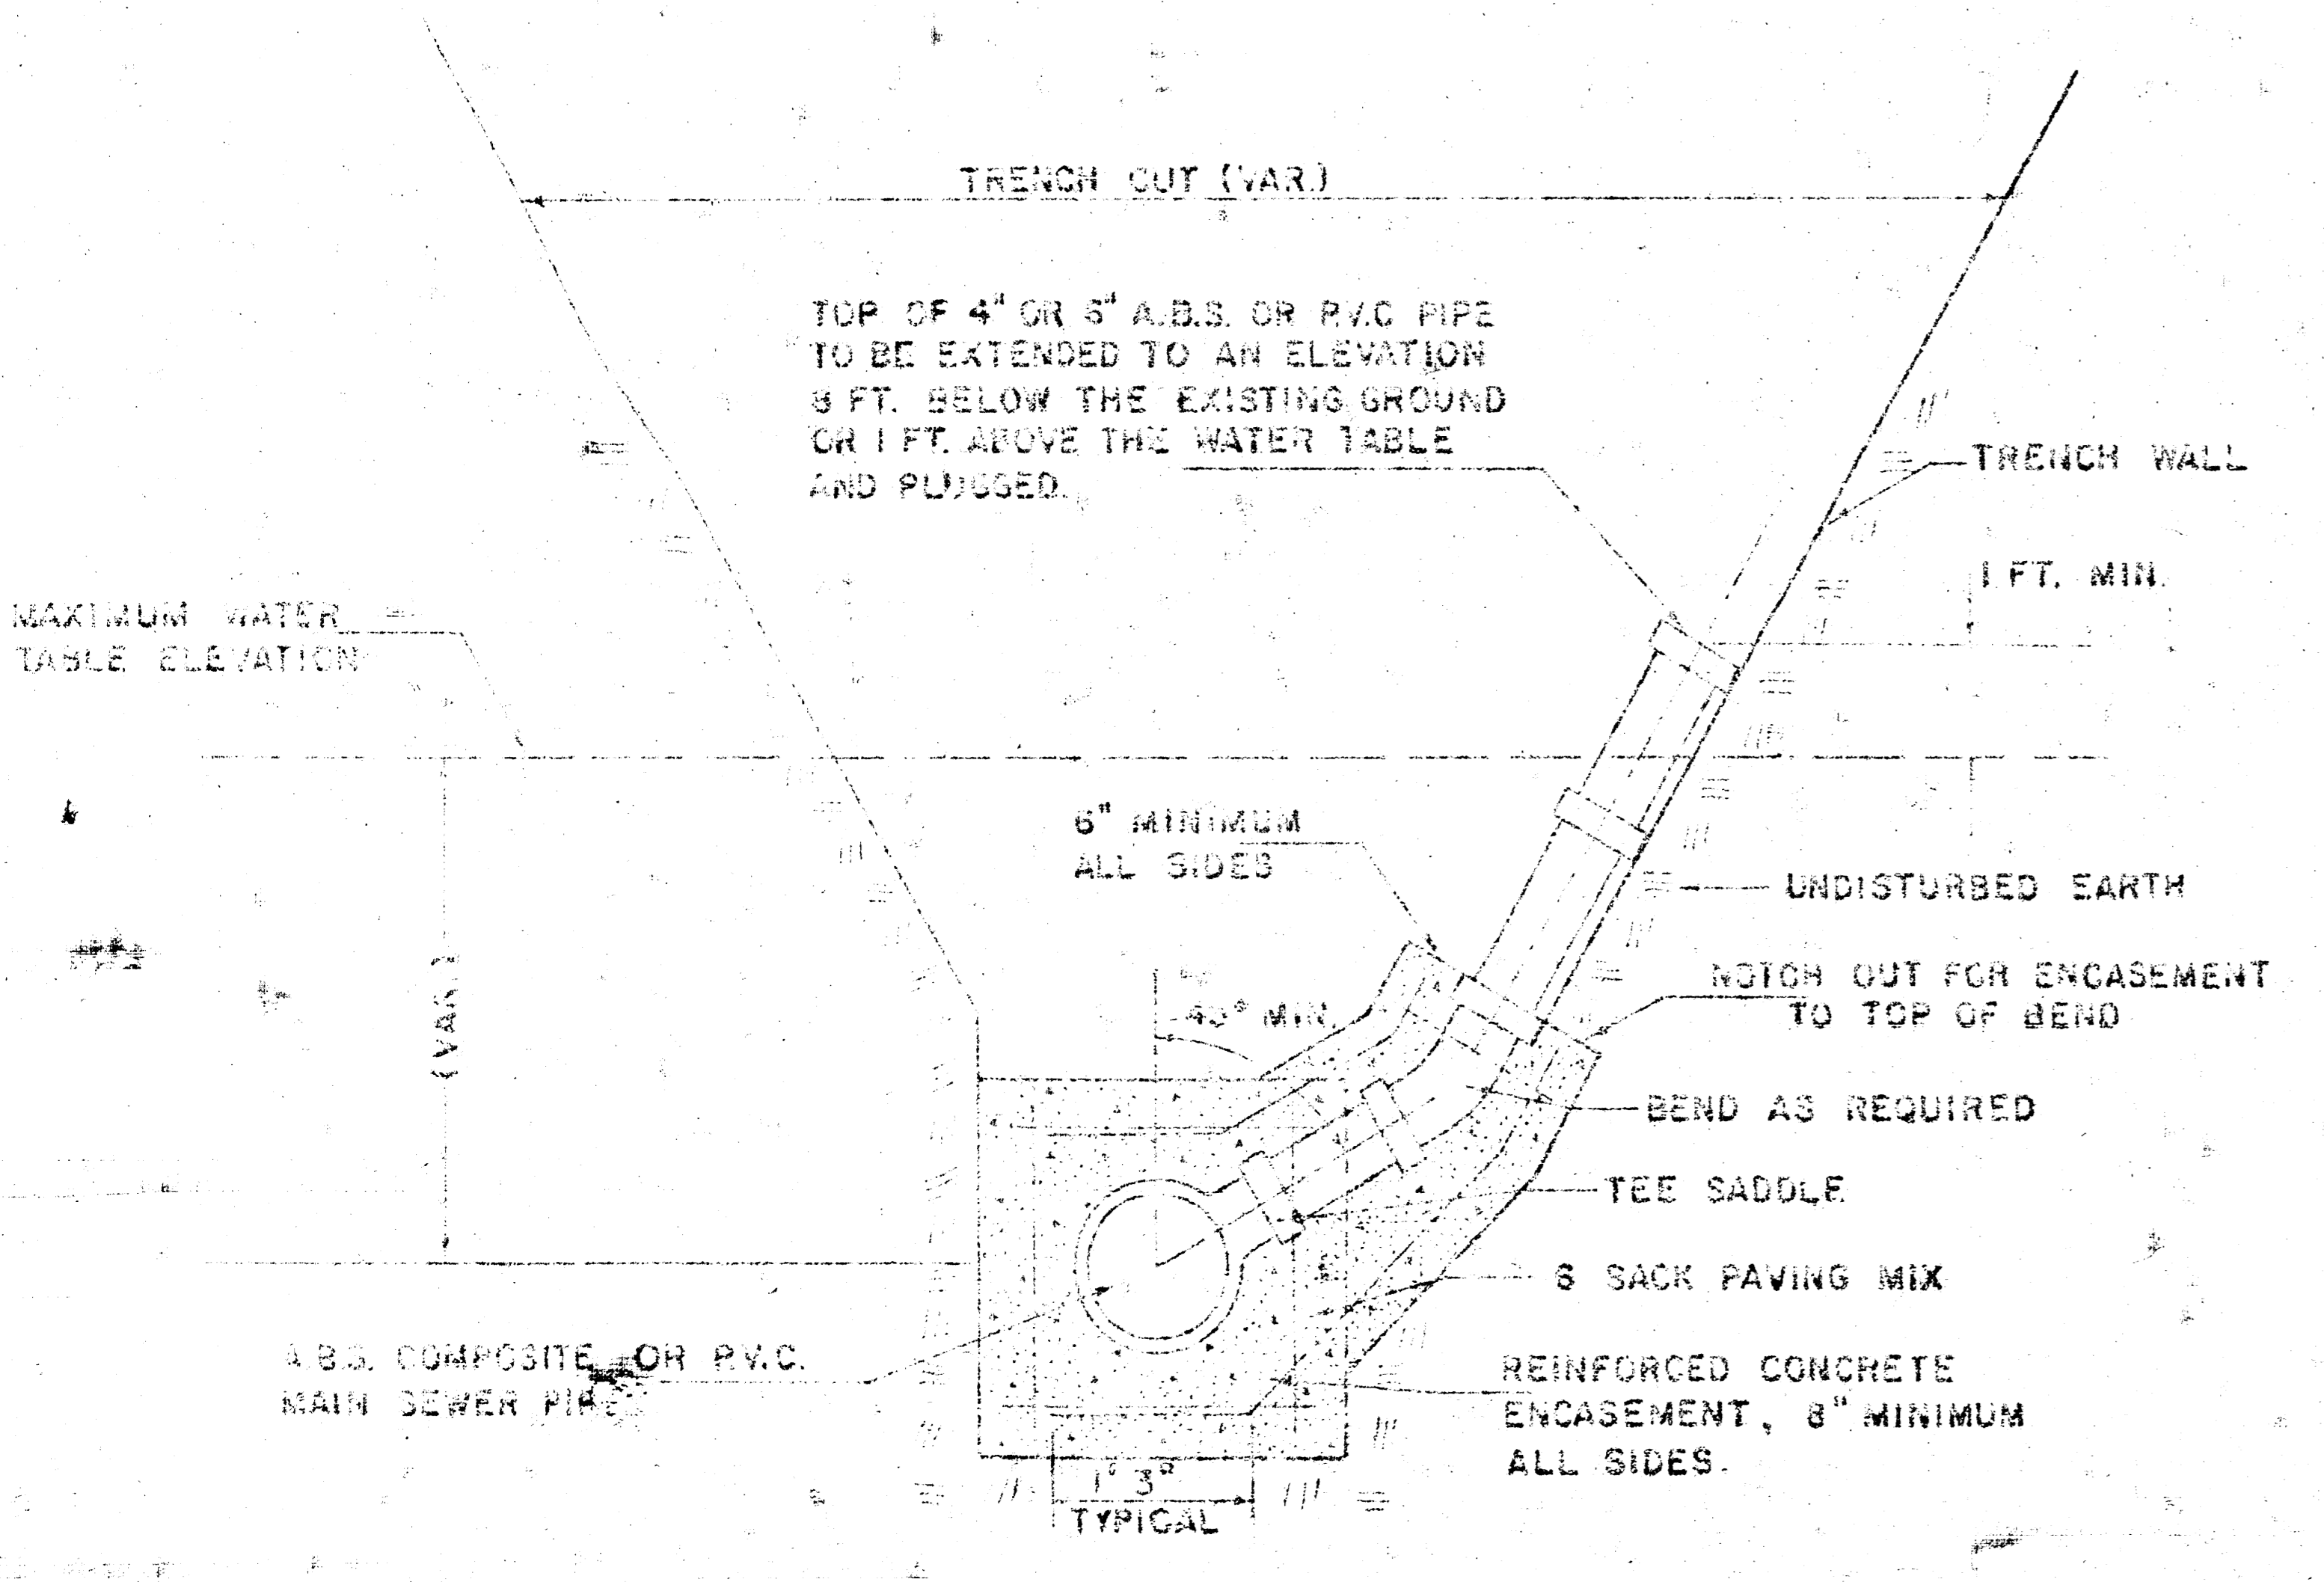 TRENCH CUT (VAR.)
TOP OF 4" OR 6" A.B.S. OR P.V.C PIPE
TO BE EXTENDED TO AN ELEVATION
8 FT. BELOW THE EXISTING GROUND
OR 1 FT. ABOVE THE WATER TABLE
AND PLUGGED.
TRENCH WALL
1 FT. MIN.
MAXIMUM WATER
TABLE ELEVATION
6" MINIMUM
ALL SIDES
UNDISTURBED EARTH
(VAR.)
NOTCH OUT FOR ENCASEMENT
TO TOP OF BEND
45° MIN.
BEND AS REQUIRED
TEE SADDLE
6 SACK PAVING MIX
A.B.S. COMPOSITE OR P.V.C.
MAIN SEWER PIPE
REINFORCED CONCRETE
ENCASEMENT, 8" MINIMUM
ALL SIDES.
1' 3"
TYPICAL